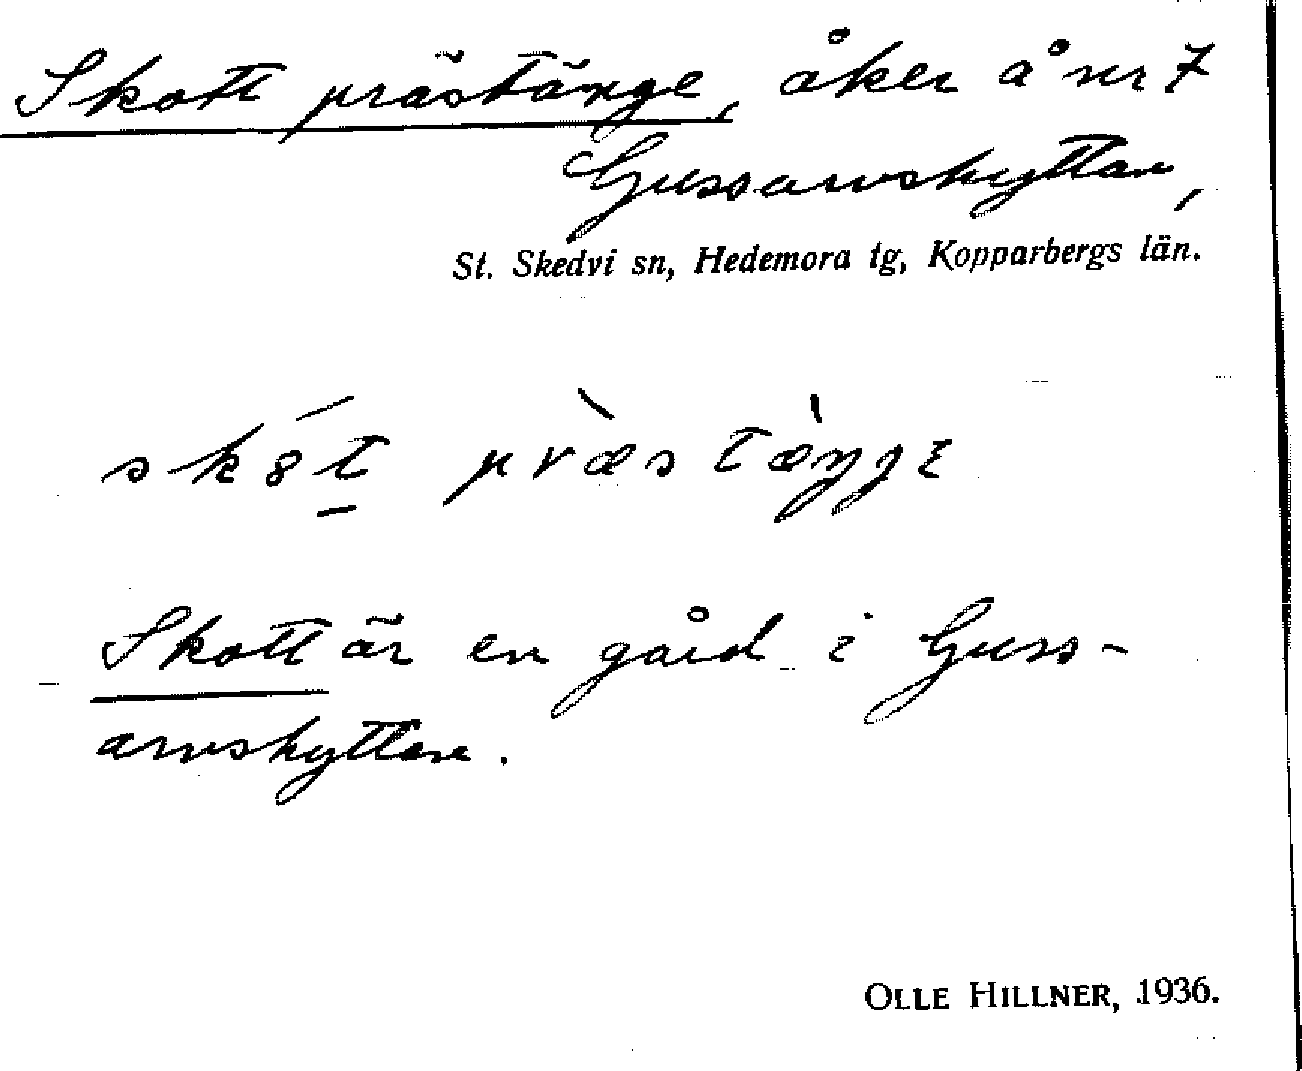 Skott prästänge, åker å nr 7
Gussarvshyttan,
St. Skedvi sn, Hedemora tg, Kopparbergs län.
Skott är en gård i Guss-
arvshyttan.
OLLE HILLNER, 1936.